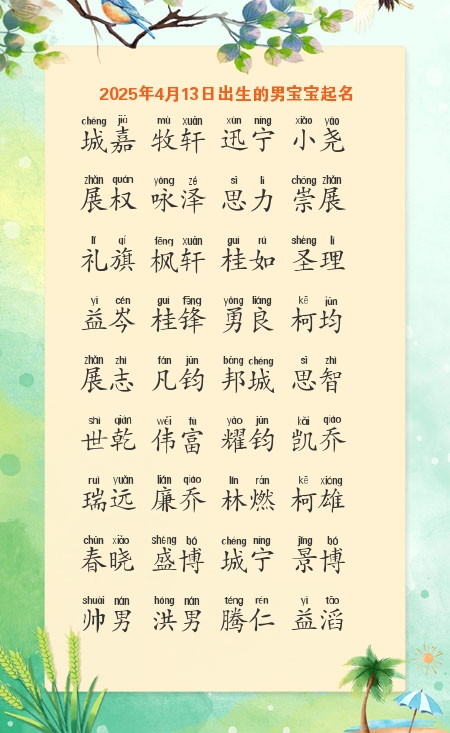 2025年4月13日出生的男宝宝起名
chéng jiā mù xuān xùn níng xiǎo yáo
城嘉 牧轩 迅宁 小尧
zhǎn quán yǒng zé sī lì chóng zhǎn
展权 咏泽 思力 崇展
lǐ qí fēng xuān guì rú shèng lǐ
礼旗 枫轩 桂如 圣理
yì cén guì fēng yǒng liáng kē jūn
益岑 桂锋 勇良 柯均
zhǎn zhì fán jūn bāng chéng sī zhì
展志 凡钧 邦城 思智
shì qián wěi fù yào jūn kǎi qiáo
世乾 伟富 耀钧 凯乔
ruì yuǎn lián qiáo lín rán kē xióng
瑞远 廉乔 林燃 柯雄
chūn xiǎo shèng bó chéng níng jǐng bó
春晓 盛博 城宁 景博
shuài nán hóng nán téng rén yì tāo
帅男 洪男 腾仁 益滔